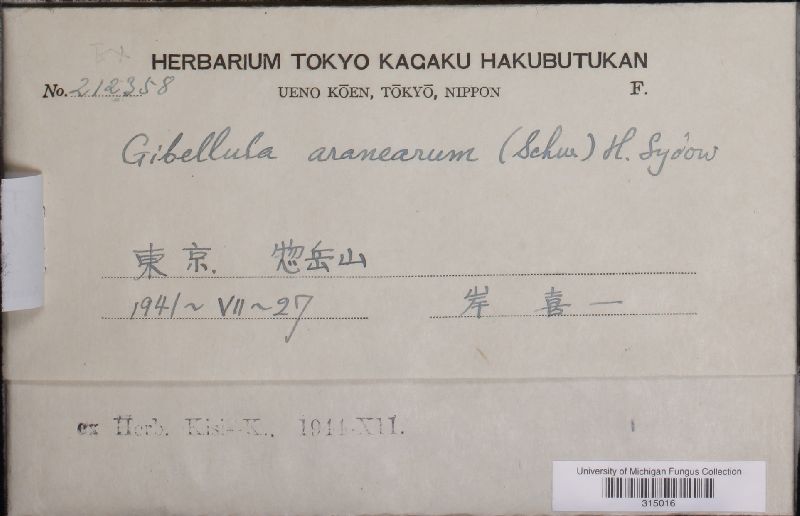 HERBARIUM TOKYO KAGAKU HAKUBUTUKAN
No. 212358 UENO KŌEN, TŌKYŌ, NIPPON F.
Gibellula aranearum (Schw.) H. Sydow
東京. 惣岳山
1941~VII~27 岸喜一
ex Herb. Kisi-K., 1944-XII.
University of Michigan Fungus Collection
315016